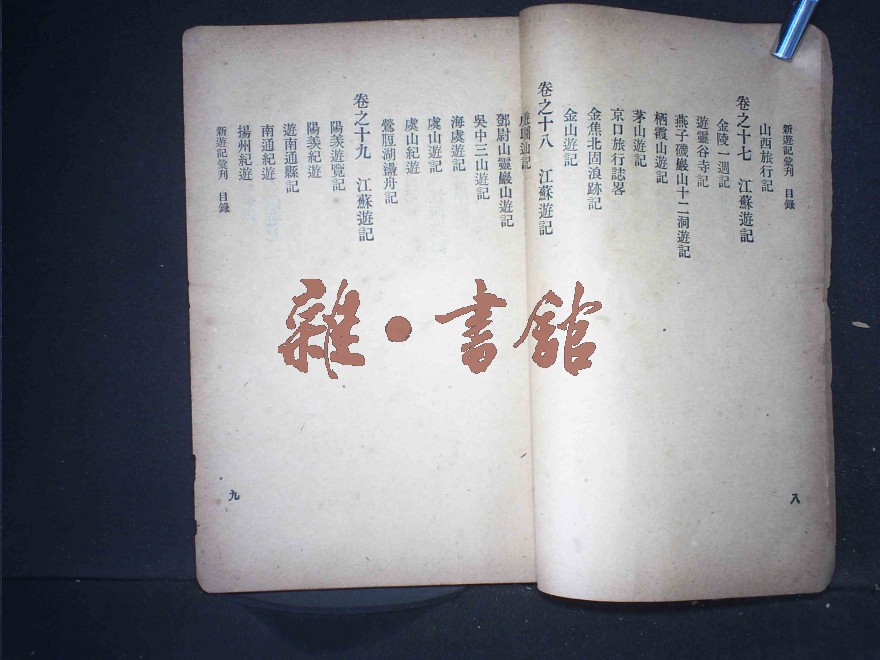 新遊記彙刋　目錄
山西旅行記
卷之十七　江蘇遊記
金陵一週記
遊靈谷寺記
燕子磯巖山十二洞遊記
栖霞山遊記
茅山遊記
京口旅行誌畧
金焦北固浪跡記
卷之十八　江蘇遊記
金山遊記
八
遊
記
鄧尉山靈巖山遊記
吳中三山遊記
海虞遊記
虞山遊記
虞山紀遊
鶯脰湖邊舟記
卷之十九　江蘇遊記
陽羨遊覽記
陽羨紀遊
遊南通縣記
南通紀遊
揚州紀遊
新遊記彙刋　目錄
九
雜·書館